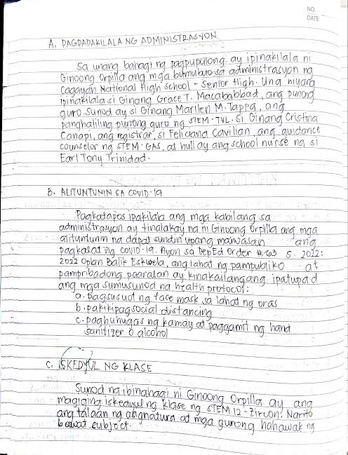 NO.
DATE
A. PAGPAPAKILALA NG ADMINISTRASYON
Sa unang bahagi ng pagpupulong ay ipinakilala ni
Ginoong Orpilla ang mga bumubuo sa administrasyon ng
Cagayan National High School - Senior High. Una niyang
ipinakilala si Ginang Grace T. Macababbad, ang punong
guro. Sunod ay si Ginang Marilen M. Tappa, ang
panghaliling punong guro ng STEM-TVL. Si Ginang Cristina
Canapi, ang registrar, si Feliciana Cavilian, ang guidance
counselor ng STEM-GAS, at huli ay ang school nurse ng si
Earl Tony Trinidad.
B. ALITUNTUNIN SA COVID-19
Pagkatapos ipakilala ang mga kabilang sa
administrasyon ay tinalakay na ni Ginoong Orpilla ang mga
alituntunin na dapat sundin upang maiwasan ang
pagkalat ng COVID-19. Ayon sa DepEd Order S. 2022:
2022 Oplan Balik Eskwela, ang lahat ng pampubliko at
pampribadong paaralan ay kinakailangang ipatupad
ang mga sumusunod na health protocol:
a. pagsusuot ng face mask sa lahat ng oras
b. pakikipagsocial distancing
c. paghuhugas ng kamay at paggamit ng hand
sanitizer o alcohol
C. ISKEDYUL NG KLASE
Sunod na ibinahagi ni Ginoong Orpilla ay ang
magiging iskedyul ng klase ng STEM 12 - Zircon. Narito
ang talaan ng asignatura at mga gurong hahawak ng
bawat subject.